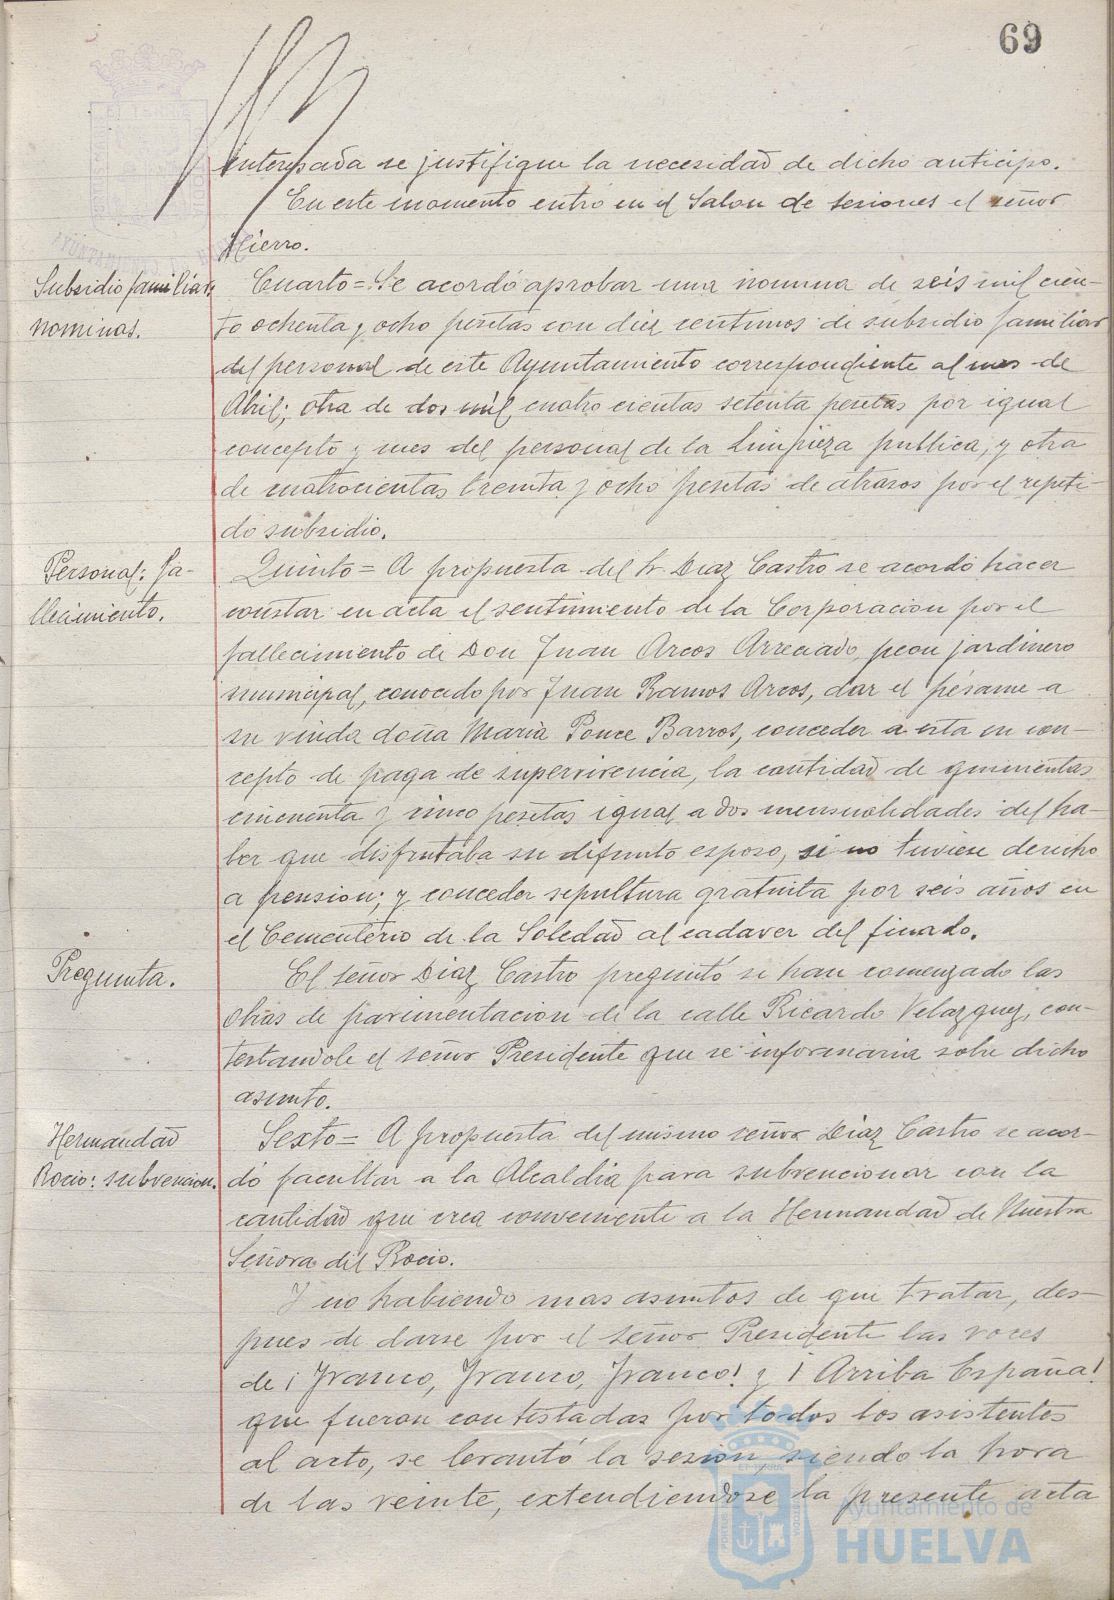 69
interesada se justifique la necesidad de dicho anticipo.
En este momento entró en el Salon de sesiones el señor
Hierro.
Subsidio familiar;
nominas.
Cuarto = Se acordó aprobar una nomina de seis mil cien-
to ochenta y ocho pesetas con diez centimos de subsidio familiar
del personal de este Ayuntamiento correspondiente al mes de
Abril; otra de dos mil cuatrocientas setenta pesetas por igual
concepto y mes del personal de la Limpieza publica, y otra
de cuatrocientas treinta y ocho pesetas de atrasos por el repeti-
do subsidio.
Personal: fa-
llecimiento.
Quinto = A propuesta del Sr. Diaz Castro se acordó hacer
constar en acta el sentimiento de la Corporacion por el
fallecimiento de Don Juan Arcos Arreciado, peon jardinero
municipal, conocido por Juan Ramos Arcos, dar el pésame a
su viuda doña Maria Ponce Barros, conceder a esta en con-
cepto de paga de supervivencia, la cantidad de quinientas
cincuenta y cinco pesetas igual a dos mensualidades del ha-
ber que disfrutaba su difunto esposo, si no tuviese derecho
a pension; y conceder sepultura gratuita por seis años en
el Cementerio de la Soledad al cadaver del finado.
Pregunta.
El señor Diaz Castro preguntó si han comenzado las
obras de pavimentacion de la calle Ricardo Velazquez, con-
testandole el señor Presidente que se informaria sobre dicho
asunto.
Hermandad
Rocio: subvencion.
Sexto = A propuesta del mismo señor Diaz Castro se acor-
dó facultar a la Alcaldia para subvencionar con la
cantidad que crea conveniente a la Hermandad de Nuestra
Señora del Rocio.
Y no habiendo mas asuntos de que tratar, des-
pues de darse por el señor Presidente las voces
de ¡Franco, Franco, Franco! y ¡Arriba España!
que fueron contestadas por todos los asistentes
al acto, se levantó la sesion, siendo la hora
de las veinte, extendiendose la presente acta
Ayuntamiento de
HUELVA